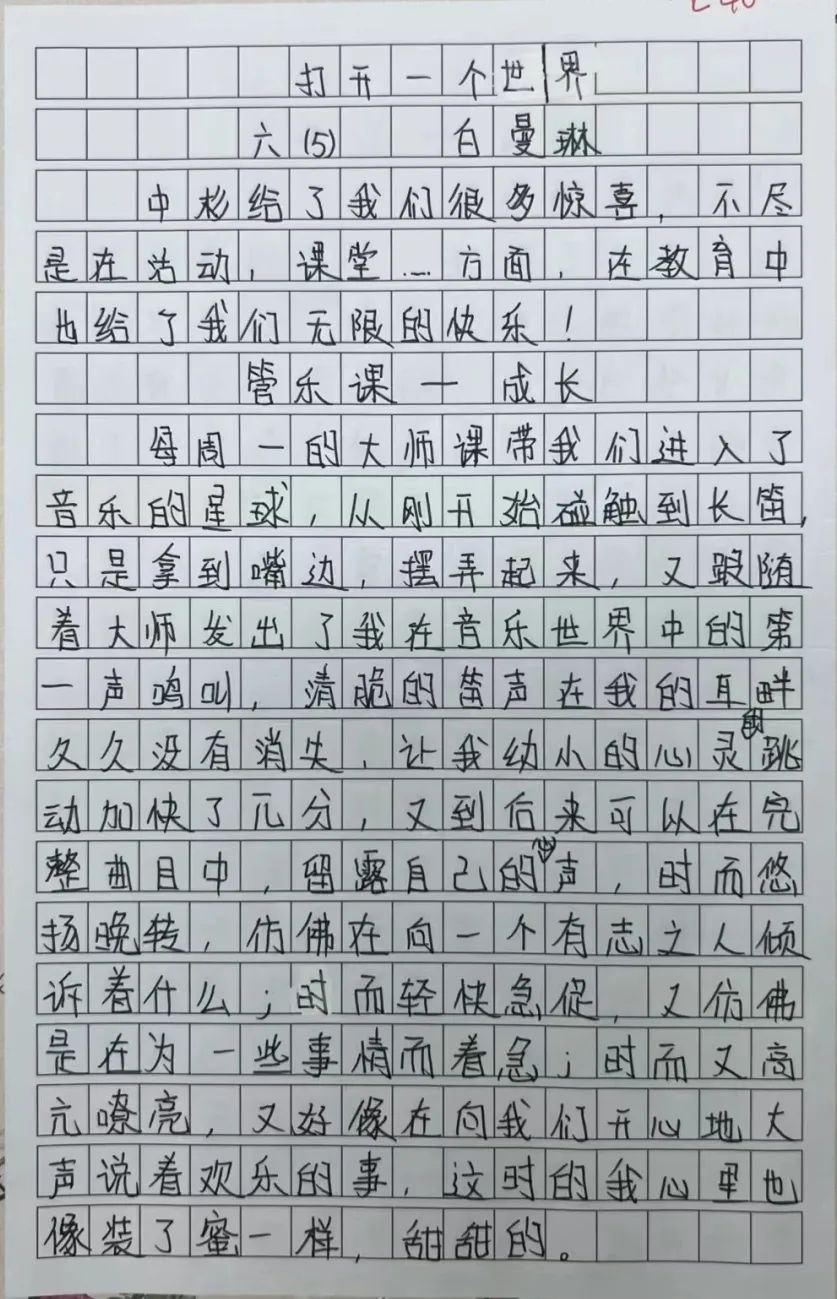 打开一个世界
六(5) 白曼琳
中杉给了我们很多惊喜，不尽
是在活动，课堂……方面，在教育中
也给了我们无限的快乐！
管乐课一成长
每周一的大师课带我们进入了
音乐的星球，从刚开始碰触到长笛，
只是拿到嘴边，摆弄起来，又跟随
着大师发出了我在音乐世界中的第
一声鸣叫，清脆的笛声在我的耳畔
久久没有消失，让我幼小的心灵跳
动加快了几分，又到后来可以在完
整曲目中，留露自己的心声，时而悠
扬晚转，仿佛在向一个有志之人倾
诉着什么；时而轻快急促，又仿佛
是在为一些事情而着急；时而又高
亢嘹亮，又好像在向我们开心地大
声说着欢乐的事，这时的我心里也
像装了蜜一样，甜甜的。